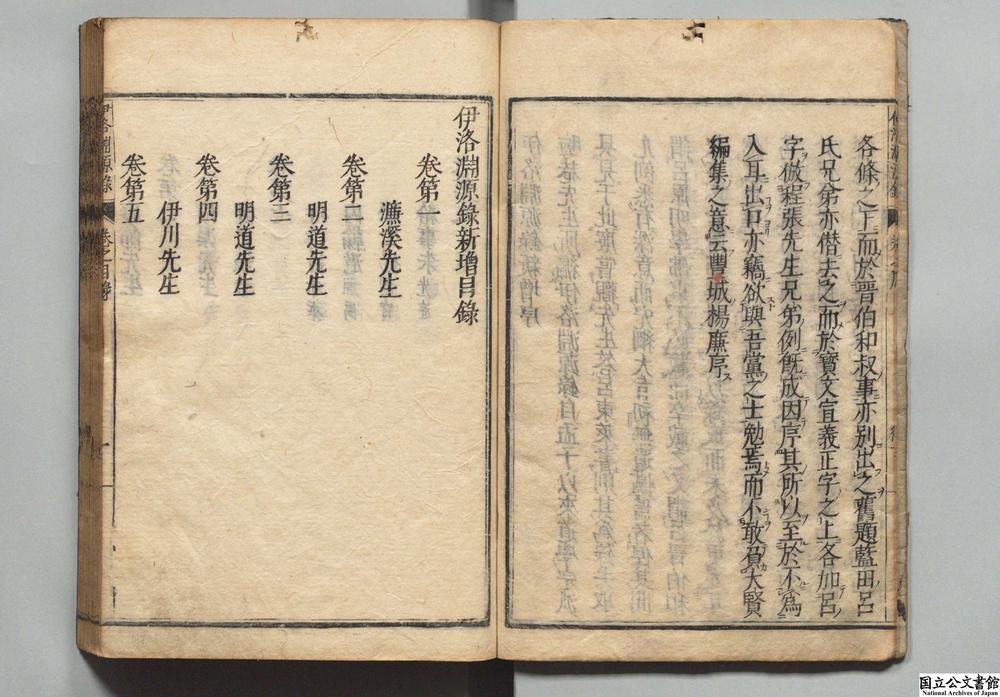 各條之下而於晉伯和叔事亦别出之舊題藍田呂
氏兄弟亦僣去之而於寶文宣義正字之上各加呂
字倣程張先生兄弟例既成因序其所以至於不為
入耳出口亦竊欲與吾黨之士勉焉而不敢負大賢
編集之意云豊城楊廉序
伊洛淵源錄新增目錄
卷第一
濂溪先生
卷第二
明道先生
卷第三
明道先生
卷第四
伊川先生
卷第五
伊洛淵源錄
国立公文書館
National Archives of Japan